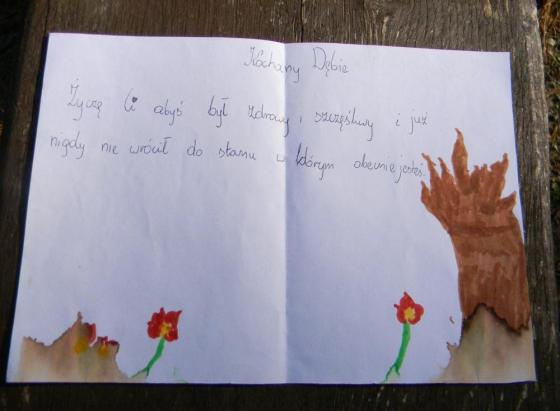 Kochany Dębie
Życzę Ci abyś był zdrowy i szczęśliwy i już
nigdy nie wrócił do stanu w którym obecnie jesteś.